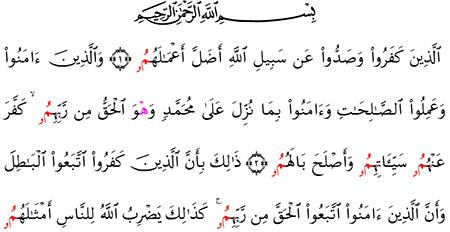 بِسْمِ اللَّهِ الرَّحْمَٰنِ الرَّحِيمِ
الَّذِينَ كَفَرُواْ وَصَدُّواْ عَن سَبِيلِ اللَّهِ أَضَلَّ أَعْمَٰلَهُمُۥ ۝١ وَالَّذِينَ ءَامَنُواْ
وَعَمِلُواْ الصَّٰلِحَٰتِ وَءَامَنُواْ بِمَا نُزِّلَ عَلَىٰ مُحَمَّدٍ وَهْوَ الْحَقُّ مِن رَّبِّهِمُۥ ۙ كَفَّرَ
عَنْهُمُۥ سَيِّـَٔاتِهِمُۥ وَأَصْلَحَ بَالَهُمُۥ ۝٢ ذَٰلِكَ بِأَنَّ الَّذِينَ كَفَرُواْ اتَّبَعُواْ الْبَٰطِلَ
وَأَنَّ الَّذِينَ ءَامَنُواْ اتَّبَعُواْ الْحَقَّ مِن رَّبِّهِمُۥ ۚ كَذَٰلِكَ يَضْرِبُ اللَّهُ لِلنَّاسِ أَمْثَٰلَهُمُۥ